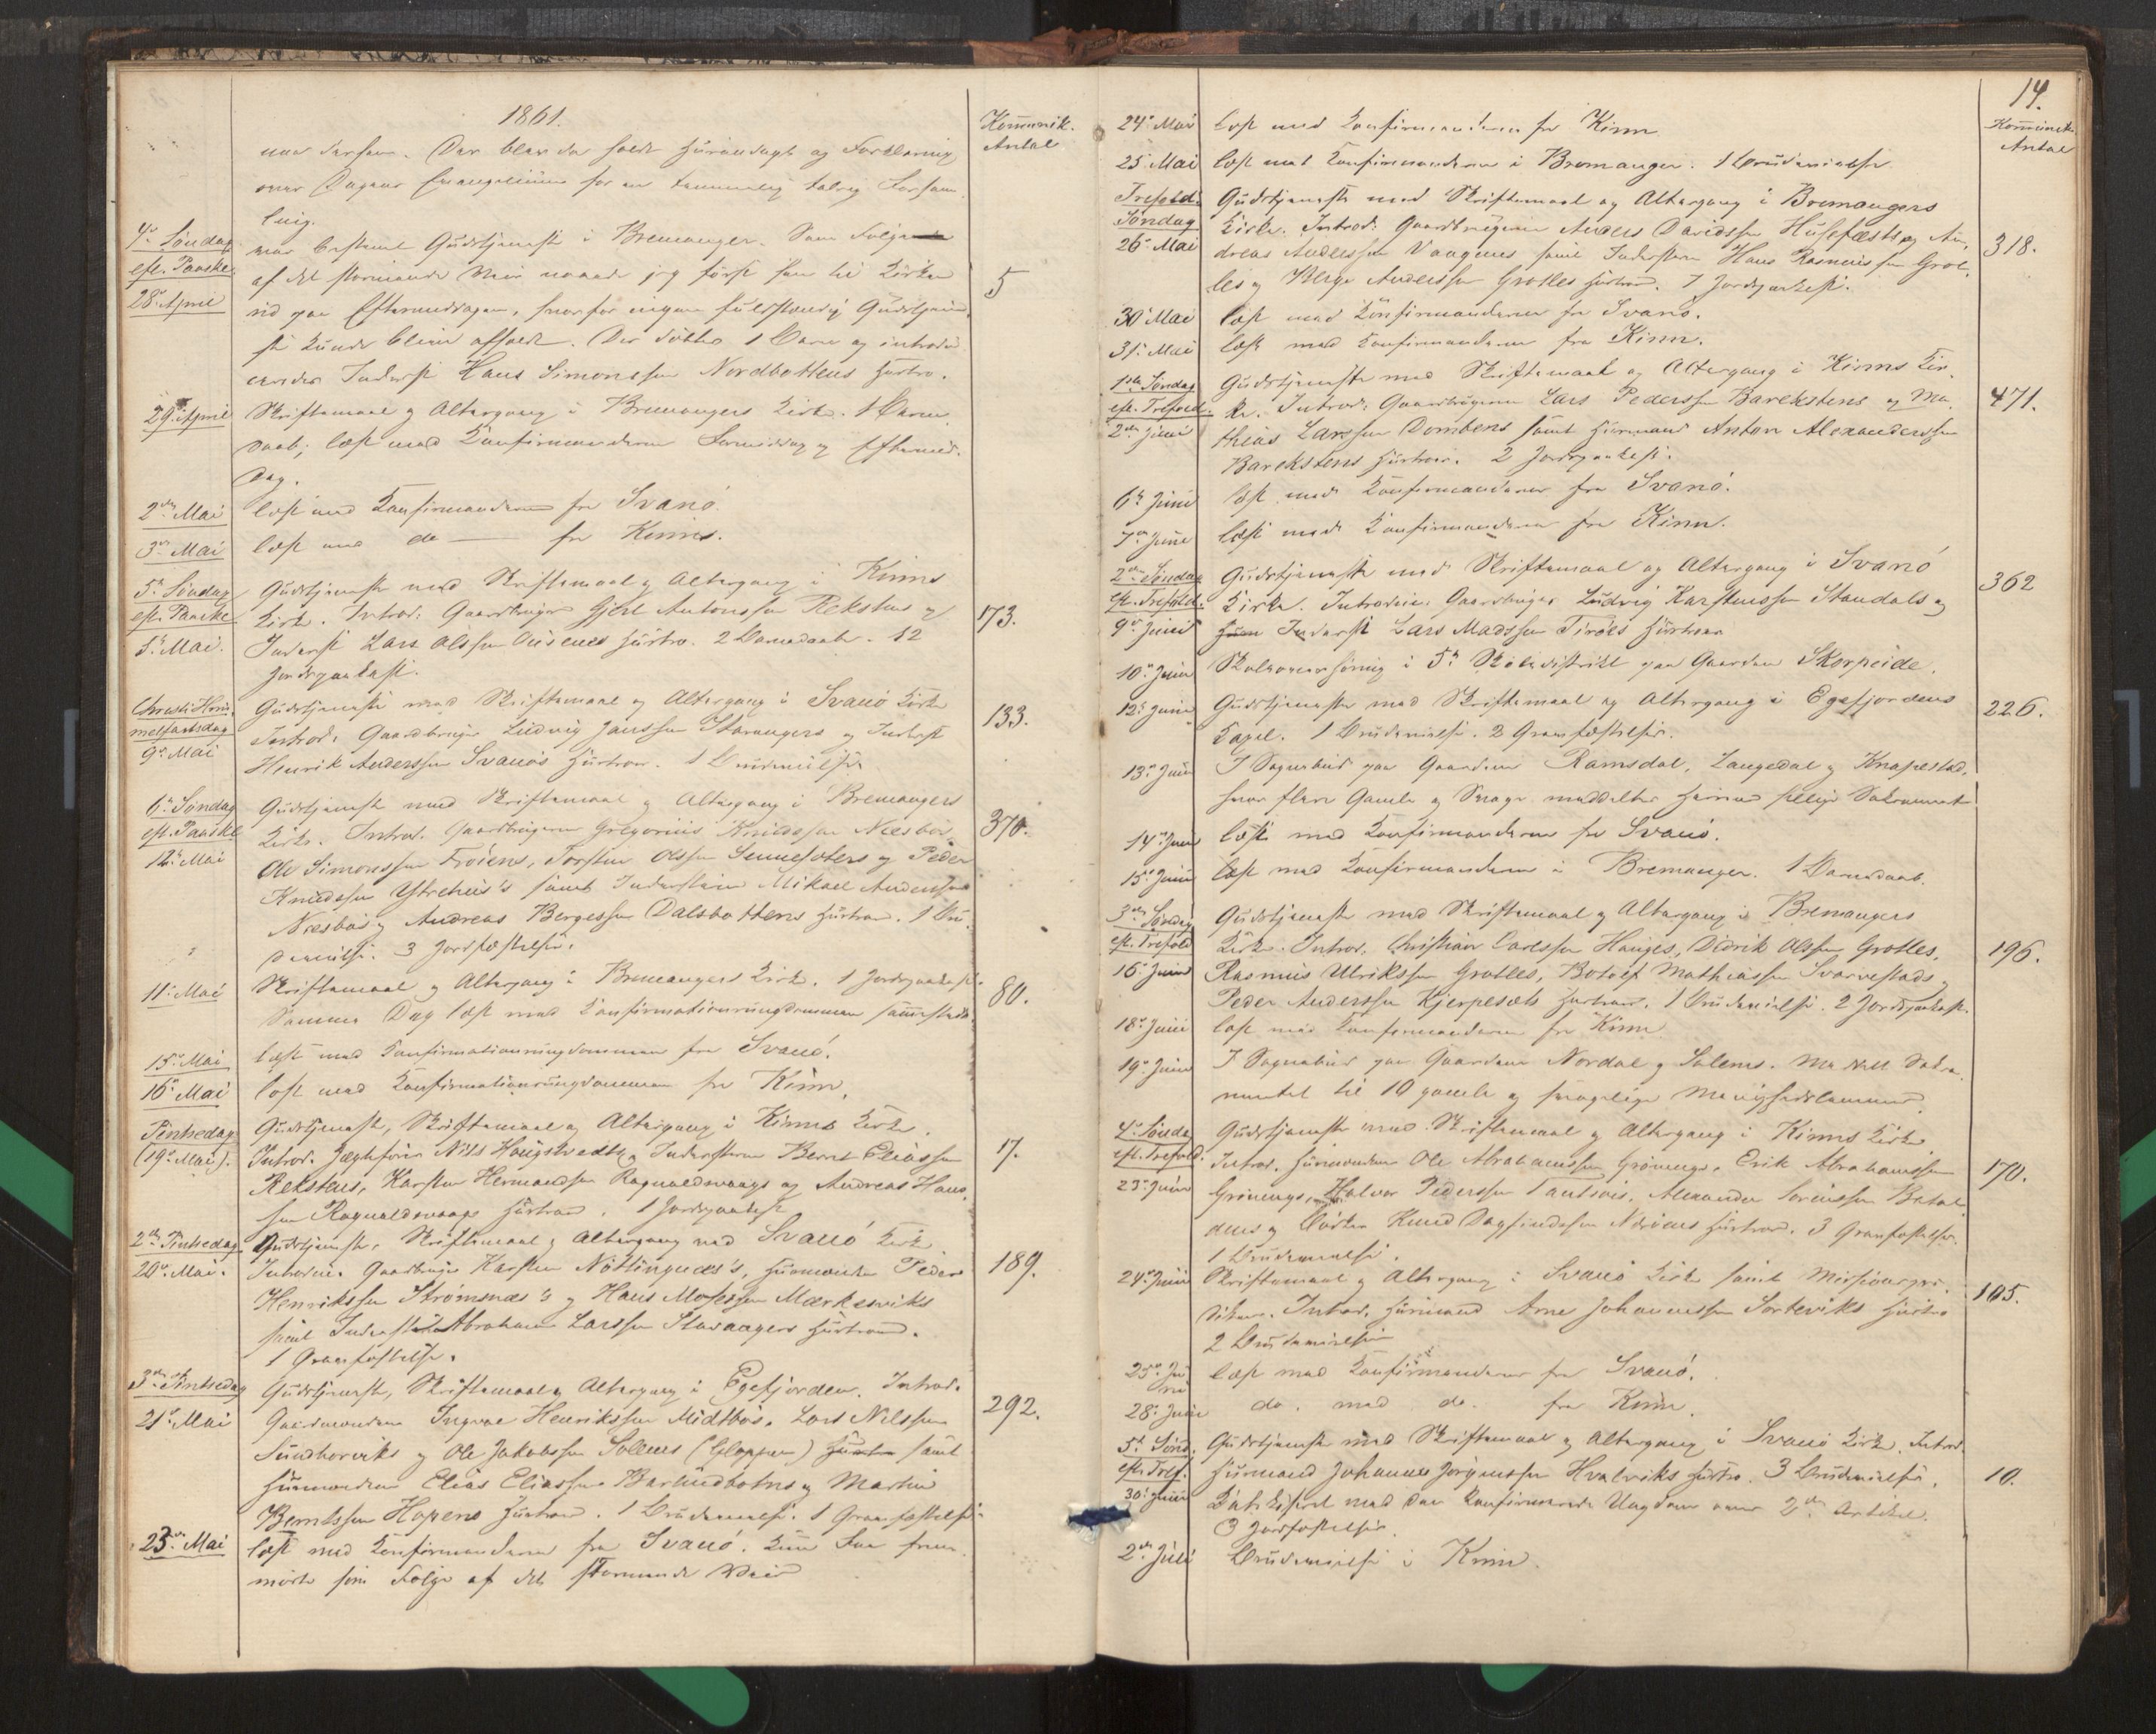 1861.
Kommunik.
Antal
Der blev da holdt Huusandagt og Forklaring
over Dagens Evangelium for en temmelig talrig Forsam
ling.
4de Søndag
eft. Paaske
28de April
var bestemt Gudstjeneste i Bremanger. Som Følge
af det stormende Veir naaede jeg først hen til Kirken
ud paa Eftermiddagen, hvorfor ingen fuldstændig Gudstjene
ste kunde blive afholdt. Der døbtes 1 Barn og introdu
ceredes Inderst Hans Simonssen Nordbottens Hustro.
5
29de April
Skriftemaal og Altergang i Bremangers Kirke. 1 Barne
daab; læst med Konfirmanderne Formiddag og Eftermid
dag.
2den Mai
læst med Konfirmanderne fra Svanö.
3die Mai
læst med do — fra Kinn.
5te Søndag
eft. Paaske
5te Mai.
Gudstjeneste med Skriftemaal og Altergang i Kinns
Kirke. Introd. Gaardbruger Gjert Antonssen Rekstens og
Inderst Lars Olssen Husenes Hustro. 2 Barnedaab. 12
Jordpaakast.
173.
Christi Him
melfartsdag
9de Mai
Gudstjeneste med Skriftemaal og Altergang i Svanö Kirke
Introd. Gaardbruger Ludvig Janssen Stavangers og Inderst
Henrik Anderssen Svanøs Hustroer. 1 Brudevielse
133.
6te Søndag
eft. Paaske
12te Mai
Gudstjeneste med Skriftemaal og Altergang i Bremangers
Kirke. Introd. Gaardbrugerne Gregorius Knudssen Næsbø,
Ole Simonssen Frøiens, Torsten Olssen Sennesæters og Peder
Knudssen Ytrehuus's samt Inderstene Mikael Anderssen
Næsbø og Andreas Børgessen Dalsbottens Hustroer. 1 Bru
devielse. 3 Jordfæstelser.
370.
11te Mai
Skriftemaal og Altergang i Bremangers Kirke. 1 Jordpaakast.
Samme Dag læst med Konfirmationsungdommen sammesteds.
80.
15de Mai
læst med Konfirmationsungdommen fra Svanö.
16de Mai
læst med Konfirmationsungdommen fra Kinn.
Pintsedag
(19de Mai).
Gudstjeneste, Skriftemaal og Altergang i Kinns Kirke.
Introd. Jægtfører Nils Haugstvedts og Inderstene Bernt Eliassen
Rekstens, Karsten Hermandsen Ragnaldsvaags og Andreas Hans
sen Ragnaldsvaags Hustroer. 1 Jordpaakast
17.
2den Pintsedag
20de Mai.
Gudstjeneste, Skriftemaal og Altergang ved Svanö Kirke
Introduc. Gaardbruger Karsten Nöttingnæs's, Huusmændene Peder
Henrikssen Strömsnæs's og Hans Mosessen Markesviks
samt Inderst Abraham Larssen Stavangers Hustroer.
1 Gravfæstelse.
189.
3die Pintsedag
21de Mai
Gudstjeneste, Skriftemaal og Altergang i Egefjorden. Introd.
Gaardmændene Ingvar Henrikssen Midtbøs, Lars Nilssen
Sundhorviks og Ole Jakobssen Solems (Klopper) samt
Huusmændene Elias Eliassen Barlindbotns og Martin
Berntssen Hopens Hustroer. 1 Brudevielse. 1 Gravfæstelse.
292.
23de Mai
læst med Konfirmanderne fra Svanö. Kun Faa frem
mødte som Følge af det stormende Veir
14.
Kommunik.
Antal
24de Mai
læst med Konfirmanderne fra Kinn
25de Mai
læst med Konfirmanderne i Bremanger. 1 Brudevielse
Trefold.
Søndag
26de Mai
Gudstjeneste med Skriftemaal og Altergang i Bremangers
Kirke. Introd. Gaardbrugerne Anders Davidssen Husefests og An
dreas Anderssen Vaagenes samt Inderstene Hans Rasmussen Grot
les og Børge Anderssen Grotles Hustroer. 7 Jordpaakast.
318.
30te Mai
læst med Konfirmanderne fra Svanö.
31te Mai
læst med Konfirmanderne fra Kinn.
1ste Søndag
eft. Trefold.
2den Juni
Gudstjeneste med Skriftemaal og Altergang i Kinns Kir
ke. Introd. Gaardbrugerne Lars Pederssen Barekstens og Ma
thias Larssen Dombens samt Huusmand Anton Alexanderssen
Barekstens Hustroer. 2 Jordpaakast.
471.
6te Juni
læst med Konfirmanderne fra Svanö.
7de Juni
læst med Konfirmanderne fra Kinn.
2den Søndag
eft. Trefold.
9de Juni
Gudstjeneste med Skriftemaal og Altergang i Svanö
Kirke. Introduc. Gaardbruger Ludvig Karstenssen Standals og
Inderst Lars Madssen Tiröes Hustroer
362
10de Juni
Skoleprøvning i 5te Skoledistrikt paa Gaarden Skorpeide.
12te Juni
Gudstjeneste med Skriftemaal og Altergang i Egefjordens
Kapel. 1 Brudevielse. 2 Gravfæstelser.
226.
13de Juni
I Sognebud paa Gaardene Ramsdal, Langedal og Knapestad,
hvor flere Gamle og Svage meddeltes Herrens hellige Sakrament
14de Juni
læst med Konfirmanderne fra Svanö.
15de Juni
læst med Konfirmanderne i Bremanger. 1 Barnedaab.
3die Søndag
eft. Trefold
16de Juni
Gudstjeneste med Skriftemaal og Altergang i Bremangers
Kirke. Introd. Christian Carlssen Hauges, Didrik Olssen Grotles,
Rasmus Ulrikssen Grotles, Botolf Mathiassen Svarvestads og
Peder Anderssen Kjerpesæts Hustroer. 1 Brudevielse. 2 Jordpaakast.
196.
18de Juni
læst med Konfirmanderne fra Kinn
19de Juni
I Sognebud paa Gaardene Nordal og Solems. Meddelt Sakra
mentet til 10 gamle og svagelige Menighedslemmer.
4de Søndag
eft. Trefold.
23de Juni
Gudstjeneste med Skriftemaal og Altergang i Kinns Kirke
Introd. Huusmændene Ole Abrahamssen Grönengs, Erik Abrahamssen
Grönengs, Halvor Pederssen Tansøis, Alexander Sörenssen Batal
dens og Knud Dagfindssen Hustroer. 3 Gravfæstelser.
1 Brudevielse.
170.
24de Juni
Skriftemaal og Altergang i Svanö Kirke samt Missionspræ
diken. Introd. Huusmand Arne Johannessen Sorteviks Hustro
2 Brudevielser
105.
25de Ju
ni
læst med Konfirmanderne fra Svanö.
28de Juni
do. med do. fra Kinn.
5te Sønd.
eft. Tref.
30te Juni
Gudstjeneste med Skriftemaal og Altergang i Svanö Kirke. Introd.
Huusmand Johannes Jörgenssen Hvalviks Hustro. 3 Brudevielser.
Katekiseret med den konfirmerede Ungdom over 2den Artikel.
3 Jordfæstelser.
10.
2den Juli
Brudevielse i Kinn.